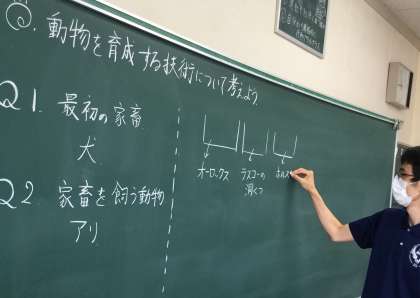 動物を育成する技術について考えよう
Q1. 最初の家畜
犬
Q2 家畜を飼う動物
アリ
オーロックス
ラスコーの
洞くつ
ホルス